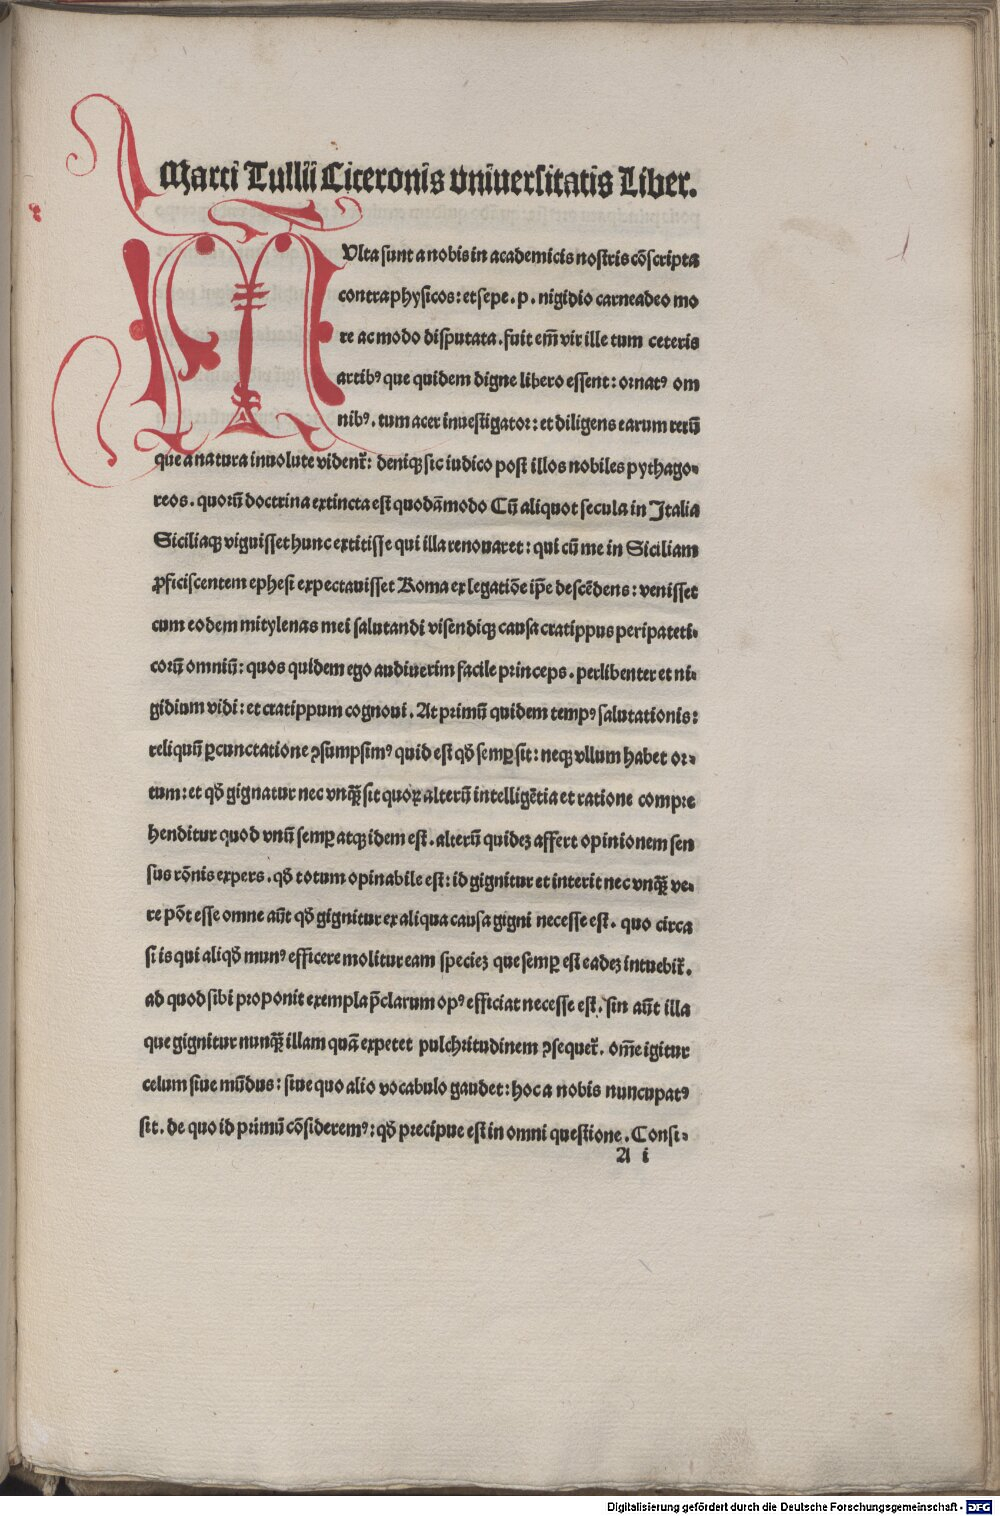 Marci Tullii Ciceronis vniuersitatis Liber.
MUlta sunt a nobis in academicis nostris cõscripta
contra physicos: et sepe . p . nigidio carneadeo mo
re ac modo disputata . fuit em̃ vir ille tum ceteris
artibꝰ que quidem digne libero essent: ornatꝰ om
nibꝰ . tum acer inuestigator: et diligens earum rerũ
que a natura inuolute vident̃: deniqꝫ sic iudico post illos nobiles pythago-
reos . quorũ doctrina extincta est quodãmodo Cũ aliquot secula in Italia
Siciliaqꝫ viguisset hunc extitisse qui illa renouaret: qui cũ me in Siciliam
ꝓficiscentem ephesi expectauisset Roma ex legatiõe ip̃e descẽdens: venisset
cum eodem mitylenas mei salutandi visendiqꝫ causa cratippus peripateti-
corũ omniũ: quos quidem ego audiuerim facile princeps . perlibenter et ni-
gidium vidi: et cratippum cognoui . At primũ quidem tempꝰ salutationis:
reliquũ ꝑcunctatione ꝯsumpsimꝰ quid est qð semꝑ sit: neqꝫ vllum habet or-
tum: et qð gignatur nec vnqꝗ̃ sit quoꝝ alterũ intelligẽtia et ratione compre
henditur quod vnũ semꝑ atqꝫ idem est . alterũ quideꝫ affert opinionem sen
sus rõnis expers . qð totum opinabile est: id gignitur et interit nec vnqꝗ̃ ve-
re põt esse omne aũt qð gignitur ex aliqua causa gigni necesse est . quo circa
si is qui aliqð munꝰ efficere molitur eam specieꝫ que semꝑ est eadeꝫ intuebit̃ .
ad quod sibi proponit exempla p̃clarum opꝰ efficiat necesse est . sin aũt illa
que gignitur nunqꝗ̃ illam quã expetet pulchritudinem ꝯsequet̃ . om̃e igitur
celum siue mũdus: siue quo alio vocabulo gaudet: hoc a nobis nuncupatꝰ
sit . de quo id primũ cõsideremꝰ: qð precipue est in omni questione . Consi-
A i
Digitalisierung gefördert durch die Deutsche Forschungsgemeinschaft - DFG